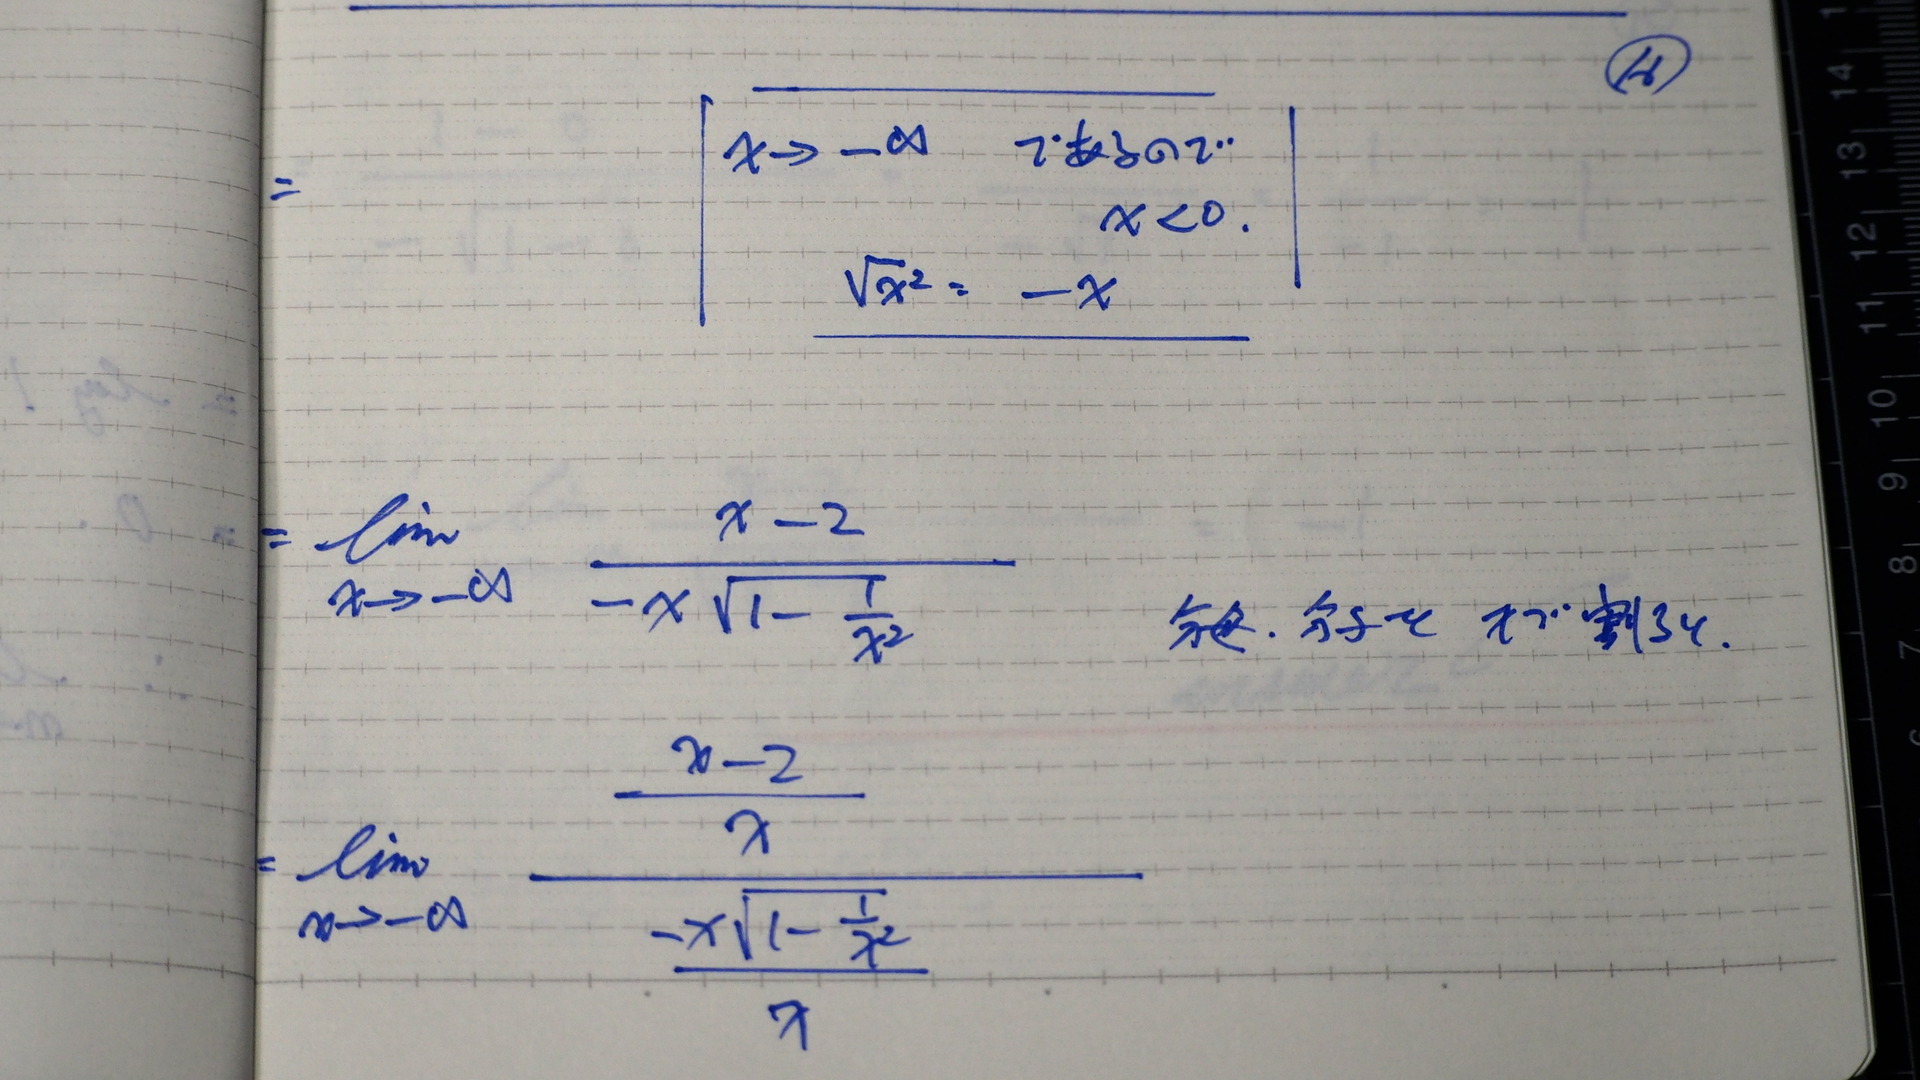 = x→ -∞ であるので
x<0.
√x² = -x
= lim x→-∞ (x-2)/(-x√(1-1/x²))
分母.分子を xで割ると.
= lim x→-∞ ((x-2)/x)/((-x√(1-1/x²))/x)
14
13
12
11
10
9
8
7